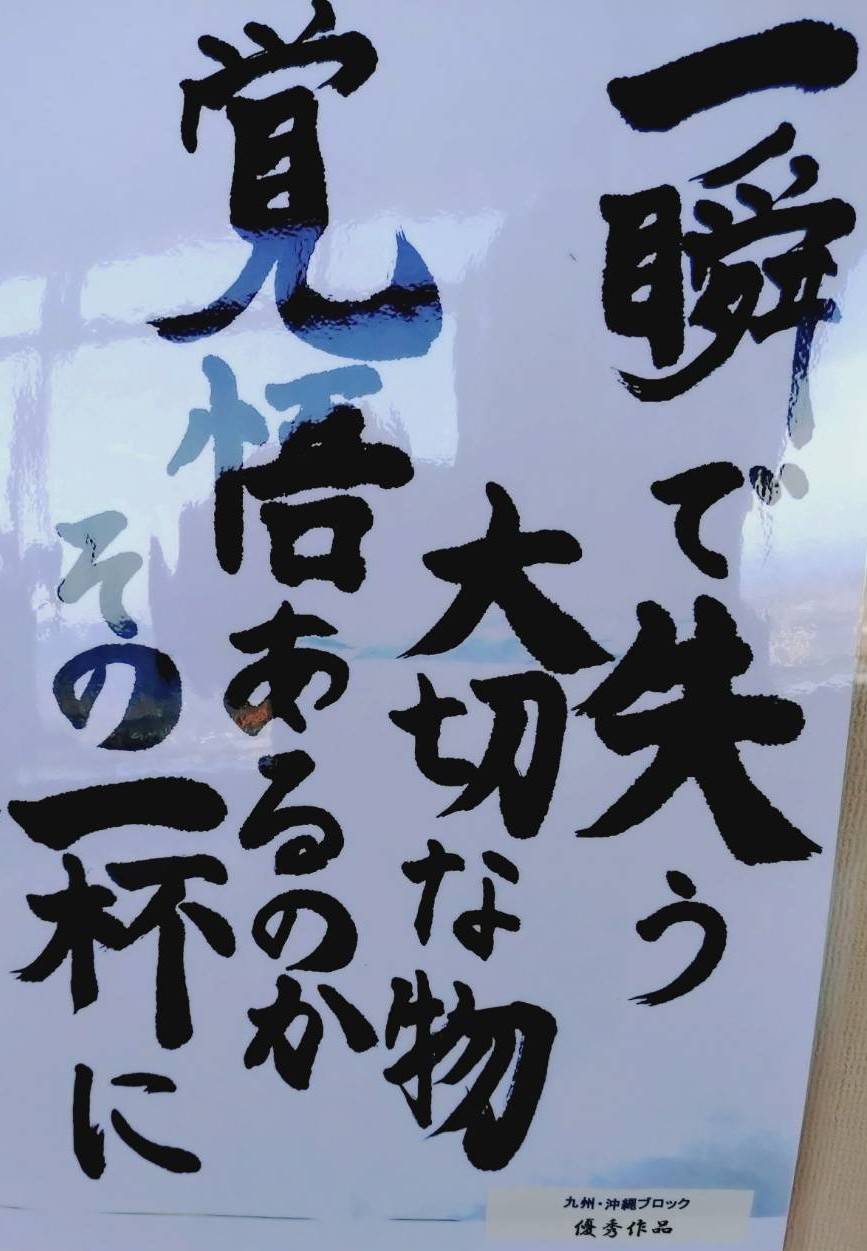 一瞬で失う
大切な物
覚悟あるのか
その一杯に
九州・沖縄ブロック
優秀作品